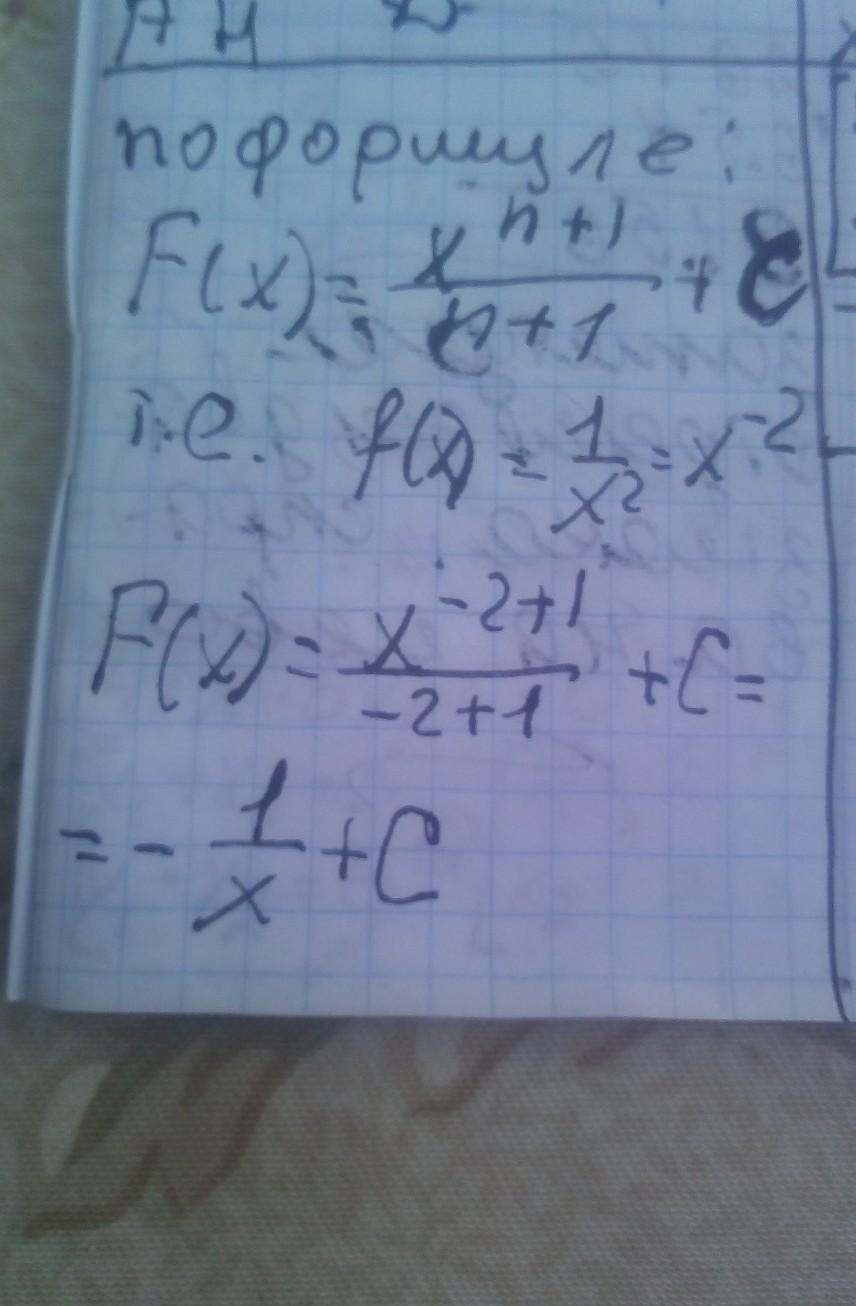 по формуле:
F(x) = x^(n+1)/(n+1) + C
i.e. f(x) = 1/x² = x⁻²
F(x) = x^(-2+1)/(-2+1) + C =
= - 1/x + C